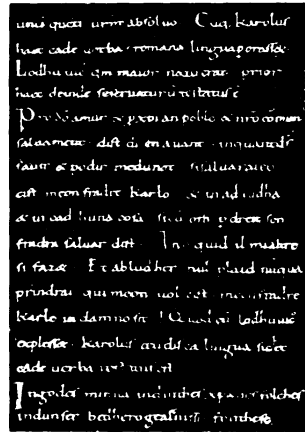 uni quoq; urm absoluo. Cūq; karolus
haec eadē uerba romana lingua perorass&
Lodhuuic qm maior natu erat prior
haec deinde se seruaturū testatus ē
Pro dō amur & p xpian poblo & nrō comun
saluament. dist di en auant. inquant dś
sauir & podir me dunat. si saluarai eo
cist meon fradre Karlo. & in adiudha
& in cad huna cosa. sicū om p dreit son
fradra saluar dist. Ino quid il mialtre
si faz&. Et abludher nul plaid nūquā
prindrai qui meon uol cist meon fradre
Karle in damno sit. Quod cū lodhuuic
expless&. karolus teudisca lingua sic ec
eadē uerba
Ingodes minna indinthes xpanes folches
indunser bedhero gealtnissi. fonthese